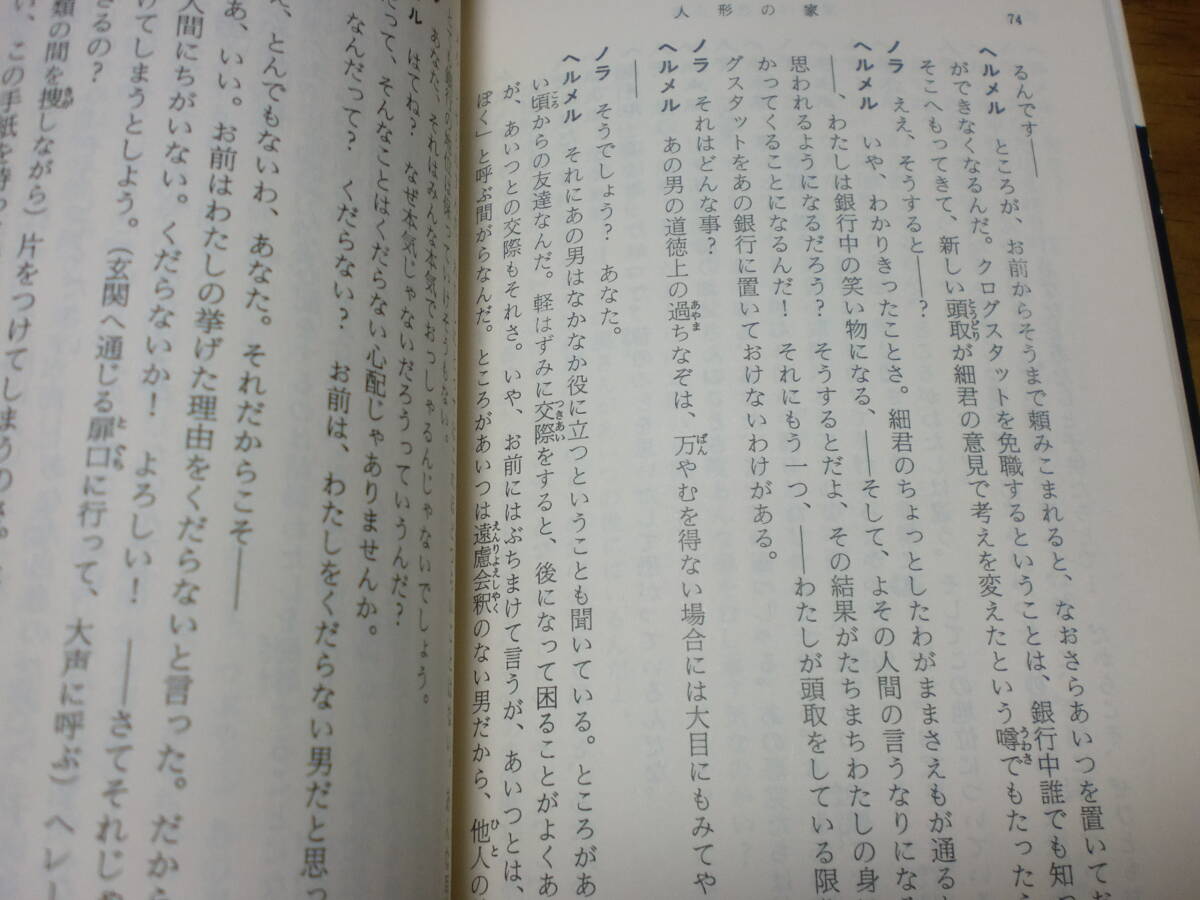 74
人形の家
るんです――
ヘルメル　ところが、お前からそうまで頼みこまれると、なおさらあいつを置いてお
ができなくなるんだ。クログスタットを免職するということは、銀行中誰でも知っ
そこへもってきて、新しい頭取が細君の意見で考えを変えたという噂でもたった
ノラ　ええ、そうすると――？
ヘルメル　いや、わかりきったことさ。細君のちょっとしたわがままさえもが通る
――、わたしは銀行中の笑い物になる、――そして、よその人間の言うなりにな
思われるようになるだろう？　そうするとだよ、その結果がたちまちわたしの身
かってくることになるんだ！　それにもう一つ、――わたしが頭取をしている限
グスタットをあの銀行に置いておけないわけがある。
ノラ　それはどんな事？
ヘルメル　あの男の道徳上の過ちなぞは、万やむを得ない場合には大目にもみてや
――
ノラ　そうでしょう？　あなた。
ヘルメル　それにあの男はなかなか役に立つということも聞いている。ところがあ
い頃からの友達なんだ。軽はずみに交際をすると、後になって困ることがよくあ
が、あいつとの交際もそれさ。いや、お前にはぶちまけて言うが、あいつとは、
ぼく」と呼ぶ間がらなんだ。ところがあいつは遠慮会釈のない男だから、他人の
ノラ　あなた、それはみんな本気でおっしゃるんじゃないでしょう。
ル　はてね？　なぜ本気じゃないだろうっていうんだ？
だって、そんなことはくだらない心配じゃありませんか。
なんだって？　くだらない？　お前は、わたしをくだらない男だと思っ
え、とんでもないわ、あなた。それだからこそ――
あ、いい。お前はわたしの挙げた理由をくだらないと言った。だから
人間にちがいない。くだらないか！　よろしい！　――さてそれじゃ
けてしまうとしよう。（玄関へ通じる扉口に行って、大声に呼ぶ）ヘレー
さるの？
類の間を捜しながら）片をつけてしまうのさ。
い、この手紙を持っ